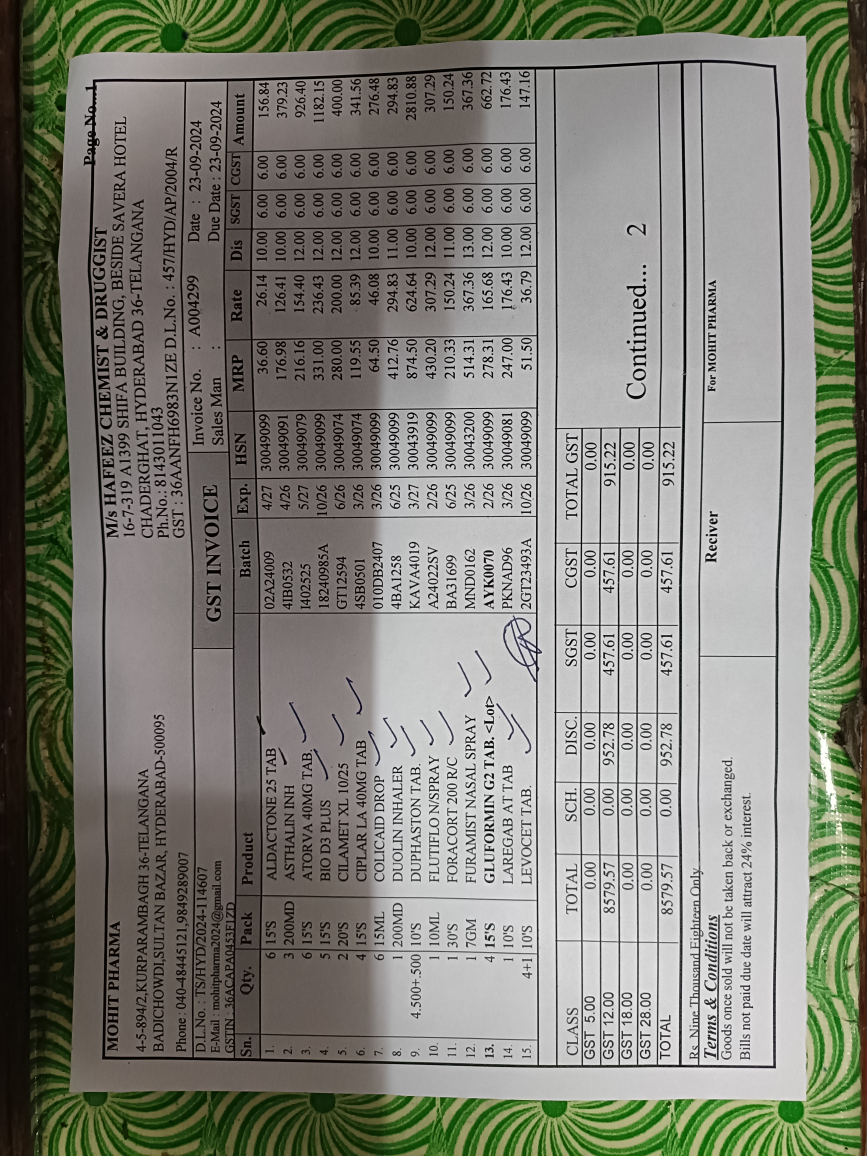 Page No...1
MOHIT PHARMA
4-5-894/2,KURPARAMBAGH 36-TELANGANA
BADICHOWDI,SULTAN BAZAR, HYDERABAD-500095
Phone : 040-48445121,9849289007
D.L.No. : TS/HYD/2024-114607
E-Mail : mohitpharma2024@gmail.com
GSTIN : 36ACAPA0453F1ZD
M/s HAFEEZ CHEMIST & DRUGGIST
16-7-319 A1399 SHIFA BUILDING, BESIDE SAVERA HOTEL
CHADERGHAT, HYDERABAD 36-TELANGANA
Ph.No.: 8143011043
GST : 36AANFH6983N1ZE D.L.No. : 457/HYD/AP/2004/R
GST INVOICE
Invoice No. : A004299 Date : 23-09-2024
Sales Man : Due Date : 23-09-2024
Sn. Qty. Pack Product Batch Exp. HSN MRP Rate Dis SGST CGST Amount
1. 6 15'S ALDACTONE 25 TAB 02A24009 4/27 30049099 36.60 26.14 10.00 6.00 6.00 156.84
2. 3 200MD ASTHALIN INH 4IB0532 4/26 30049091 176.98 126.41 10.00 6.00 6.00 379.23
3. 6 15'S ATORVA 40MG TAB. I402525 5/27 30049079 216.16 154.40 12.00 6.00 6.00 926.40
4. 5 15'S BIO D3 PLUS 18240985A 10/26 30049099 331.00 236.43 12.00 6.00 6.00 1182.15
5. 2 20'S CILAMET XL 10/25 GT12594 6/26 30049074 280.00 200.00 12.00 6.00 6.00 400.00
6. 4 15'S CIPLAR LA 40MG TAB 4SB0501 3/26 30049074 119.55 85.39 12.00 6.00 6.00 341.56
7. 6 15ML COLICAID DROP 010DB2407 3/26 30049099 64.50 46.08 10.00 6.00 6.00 276.48
8. 1 200MD DUOLIN INHALER 4BA1258 6/25 30049099 412.76 294.83 11.00 6.00 6.00 294.83
9. 4.500+.500 10'S DUPHASTON TAB. KAVA4019 3/27 30043919 874.50 624.64 10.00 6.00 6.00 2810.88
10. 1 10ML FLUTIFLO N/SPRAY A24022SV 2/26 30049099 430.20 307.29 12.00 6.00 6.00 307.29
11. 1 30'S FORACORT 200 R/C BA31699 6/25 30049099 210.33 150.24 11.00 6.00 6.00 150.24
12. 1 7GM FURAMIST NASAL SPRAY MND0162 3/26 30043200 514.31 367.36 13.00 6.00 6.00 367.36
13. 4 15'S GLUFORMIN G2 TAB. <Lot> AYK0070 2/26 30049099 278.31 165.68 12.00 6.00 6.00 662.72
14. 1 10'S LAREGAB AT TAB PKNAD96 3/26 30049081 247.00 176.43 10.00 6.00 6.00 176.43
15. 4+1 10'S LEVOCET TAB. 2GT23493A 10/26 30049099 51.50 36.79 12.00 6.00 6.00 147.16
CLASS TOTAL SCH. DISC. SGST CGST TOTAL GST
GST 5.00 0.00 0.00 0.00 0.00 0.00 0.00
GST 12.00 8579.57 0.00 952.78 457.61 457.61 915.22
GST 18.00 0.00 0.00 0.00 0.00 0.00 0.00
GST 28.00 0.00 0.00 0.00 0.00 0.00 0.00
TOTAL 8579.57 0.00 952.78 457.61 457.61 915.22
Continued... 2
Rs. Nine Thousand Eighteen Only
Terms & Conditions
Goods once sold will not be taken back or exchanged.
Bills not paid due date will attract 24% interest.
Reciver
For MOHIT PHARMA